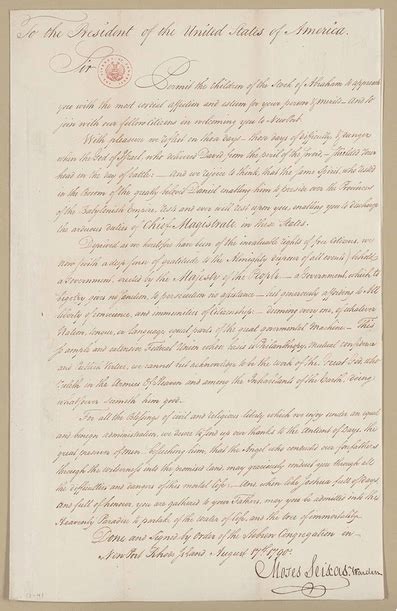 To the President of the United States of America.
Sir
Permit the children of the Stock of Abraham to approach
you with the most cordial affection and esteem for your person & merits — and to
join with our fellow citizens in welcoming you to NewPort.
With pleasure we reflect on those days — those days of difficulty, & danger
when the God of Israel, who delivered David from the peril of the sword, — shielded Your
head in the day of battle: — and we rejoice to think, that the same Spirit, who rested
in the Bosom of the greatly beloved Daniel enabling him to preside over the Provinces
of the Babylonish Empire, rests and ever will rest, upon you, enabling you to discharge
the arduous duties of Chief Magistrate in these States.
Deprived as we heretofore have been of the invaluable rights of free Citizens, we
now (with a deep sense of gratitude to the Almighty disposer of all events) behold
a Government, erected by the Majesty of the People — a Government, which to
bigotry gives no sanction, to persecution no assistance — but generously affording to All
liberty of conscience, and immunities of Citizenship: — deeming every one, of whatever
Nation, tongue, or language equal parts of the great governmental Machine: — This
so ample and extensive Federal Union whose basis is Philanthropy, mutual confidence
and Publick Virtue, we cannot but acknowledge to be the work of the Great God, who
ruleth in the Armies Of Heaven and among the Inhabitants of the Earth, doing
whatever seemeth him good.
For all the Blessings of civil and religious liberty which we enjoy under an equal
and benign administration, we desire to send up our thanks to the Antient of Days, the
great preserver of Men — beseeching him, that the Angel who conducted our forefathers
through the wilderness into the promised land, may graciously conduct you through all
the difficulties and dangers of this mortal life: — and, when like Joshua full of days,
and full of honour, you are gathered to your Fathers, may you be admitted into the
Heavenly Paradise to partake of the water of life, and the tree of immortality.
Done and Signed by Order of the Hebrew Congregation in
NewPort Rhode Island August 17th 1790.
Moses Seixas Warden